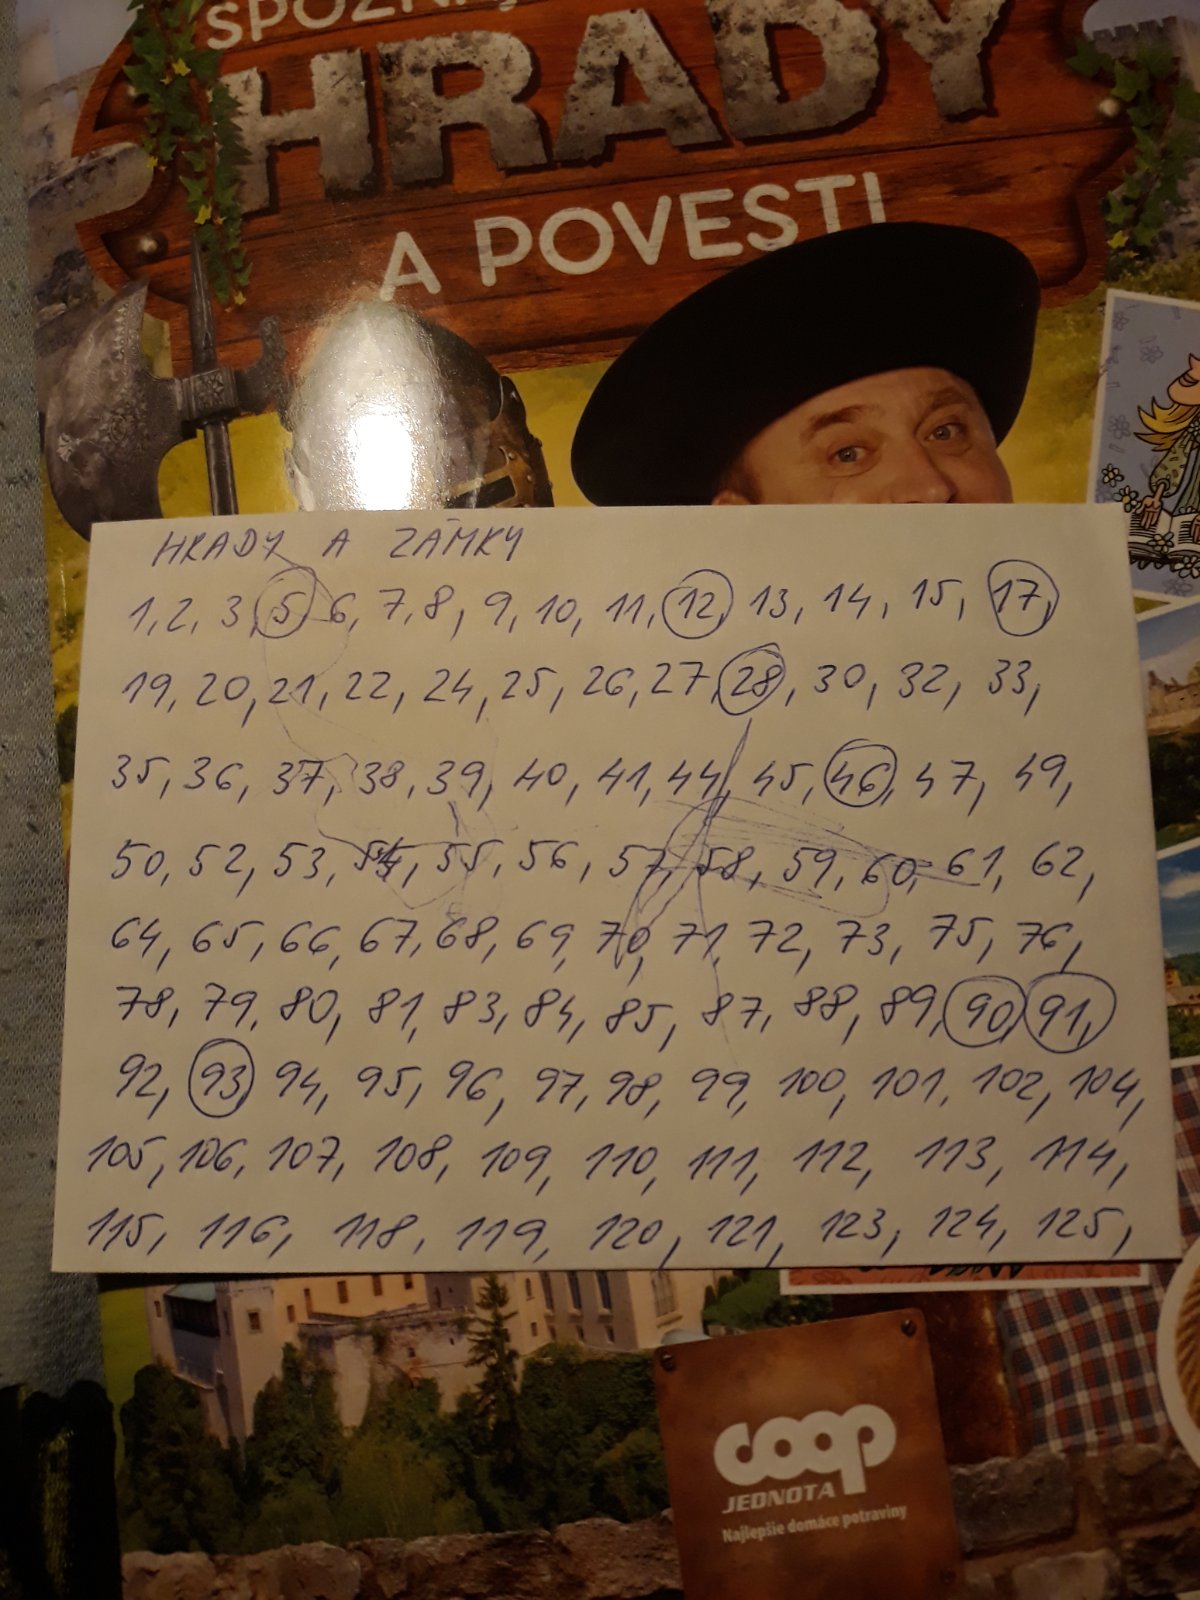 HRADY
A POVESTI
HRADY A ZÁMKY
1, 2, 3, 5, 6, 7, 8, 9, 10, 11, 12, 13, 14, 15, 17,
19, 20, 21, 22, 24, 25, 26, 27, 28, 30, 32, 33,
35, 36, 37, 38, 39, 40, 41, 44, 45, 46, 47, 49,
50, 52, 53, 54, 55, 56, 57, 58, 59, 60, 61, 62,
64, 65, 66, 67, 68, 69, 70, 71, 72, 73, 75, 76,
78, 79, 80, 81, 83, 84, 85, 87, 88, 89, 90, 91,
92, 93, 94, 95, 96, 97, 98, 99, 100, 101, 102, 104,
105, 106, 107, 108, 109, 110, 111, 112, 113, 114,
115, 116, 118, 119, 120, 121, 123, 124, 125,
coop
JEDNOTA
Najlepšie domáce potraviny